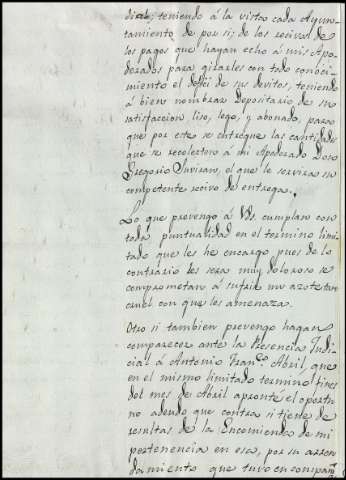 diat.; teniendo á la vista cada Ayun-
tamiento de por si; de los recivos de
los pagos que hayan echo á mis Apo-
derados para girarles con todo conoci-
miento el defici de sus devitos, teniendo
á bien nombrar Depositario de su
satisfaccion liso, lego, y abonado, para
que por este se entregue las cantidades
que se recolecten á mi Apoderado Don
Gregorio el que le servira su
competente recivo de entrega.
Lo que prevengo á Vds. cumplan con
toda puntualidad en el termino limi-
tado que les he encargo pues de lo
contrario les sera muy doloroso se
comprometan á sufrir un azote tan
cruel con que les amenaza.
Otro si tambien prevengo hagan
comparecer ante la Presencia Judi-
cial á Antonio Franco. Abril, que
en el mismo limitado termino fines
del mes de Abril apronté el oportu-
no adeudo que contra si tiene de
resultas de la Encomienda de mi
pertenencia en esa, por su arren-
damiento que tuvo en compañ